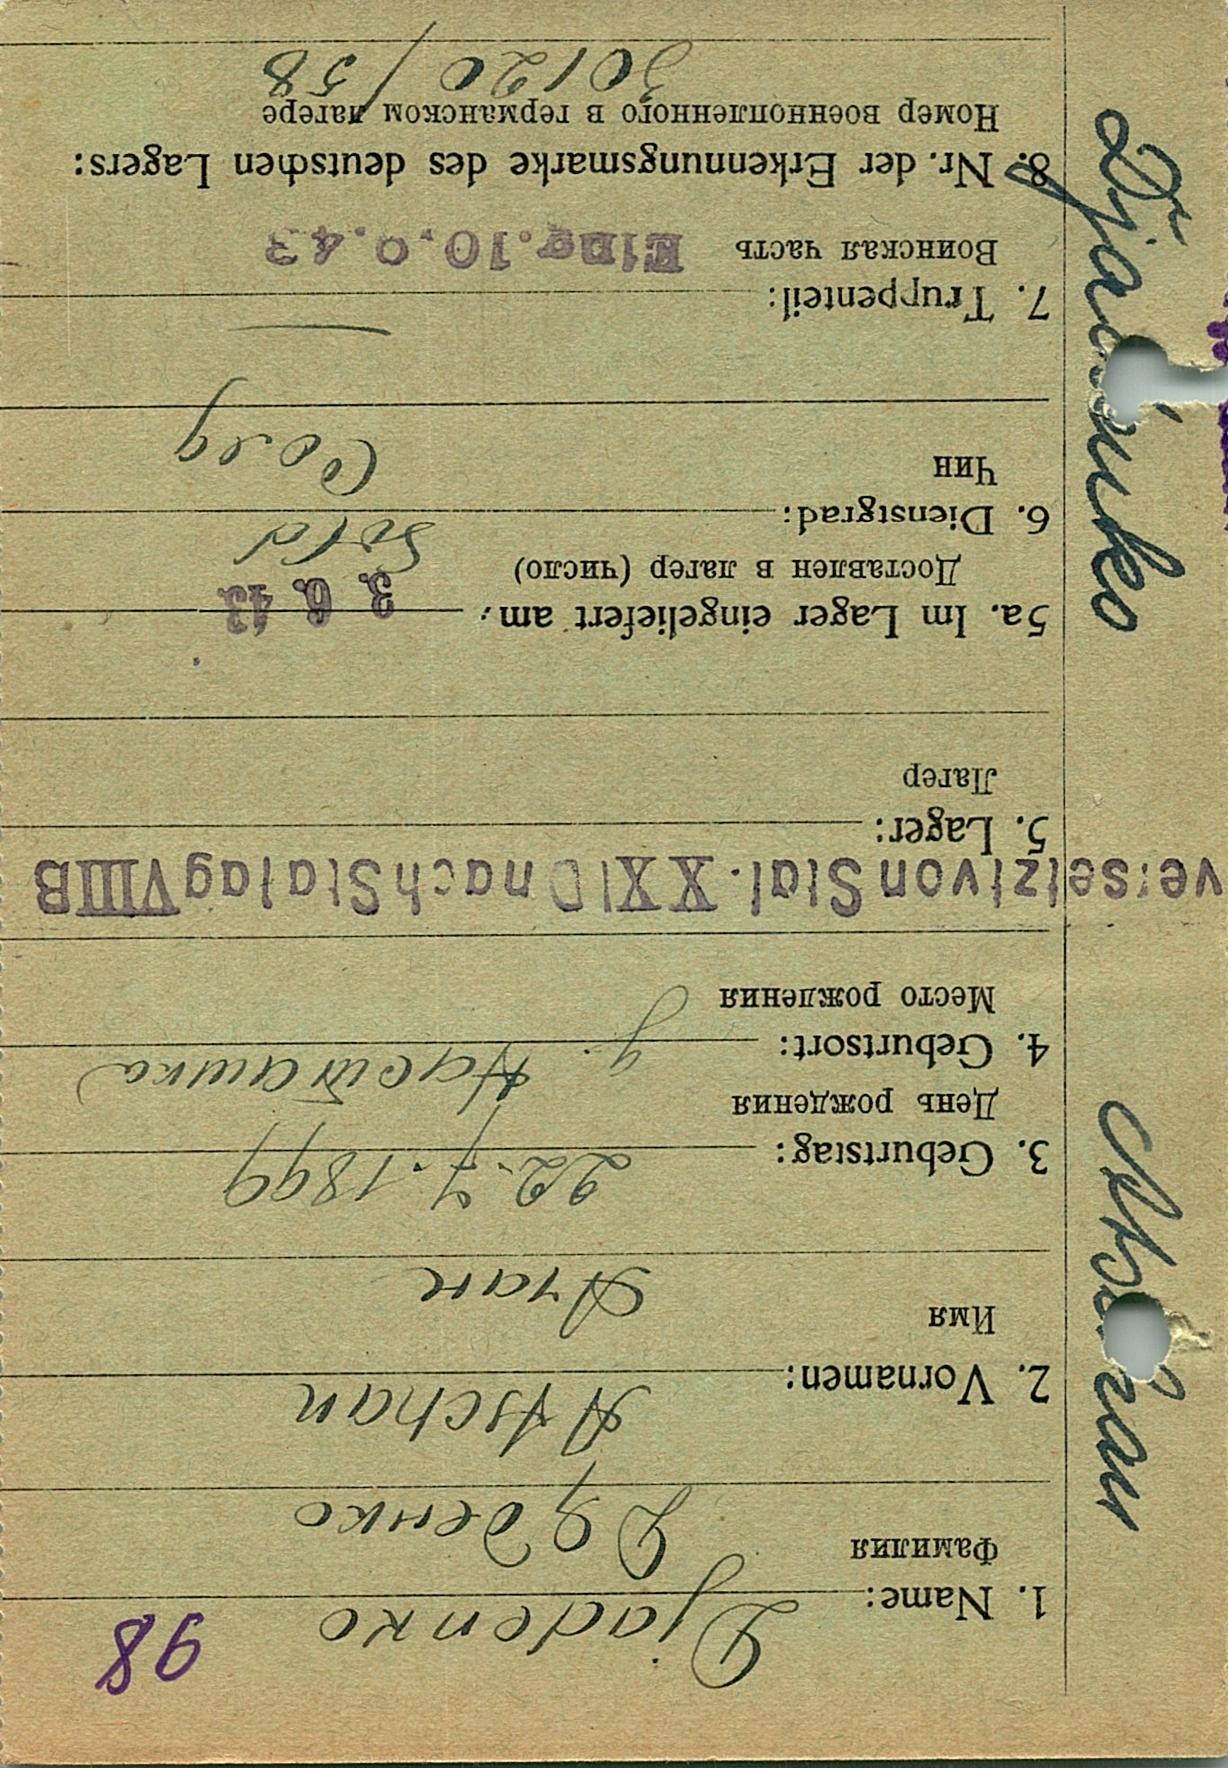 98
1. Name: Djadenko
Фамилия Дяденко
2. Vornamen: Atschan
Имя Ачан
3. Geburtstag: 22.7.1899
День рождения
4. Geburtsort:
Место рождения
versetzt von Stal. XXI D nach Stalag VIIIB
5. Lager:
Лагер
5a. Im Lager eingeliefert am: 3. 6. 43
Доставлен в лагер (число)
6. Dienstgrad: Sold
Чин Солд
7. Truppenteil: —
Воинская часть Eing. 10. 43
8. Nr. der Erkennungsmarke des deutschen Lagers:
Номер военнопленного в германском лагере
30120/58